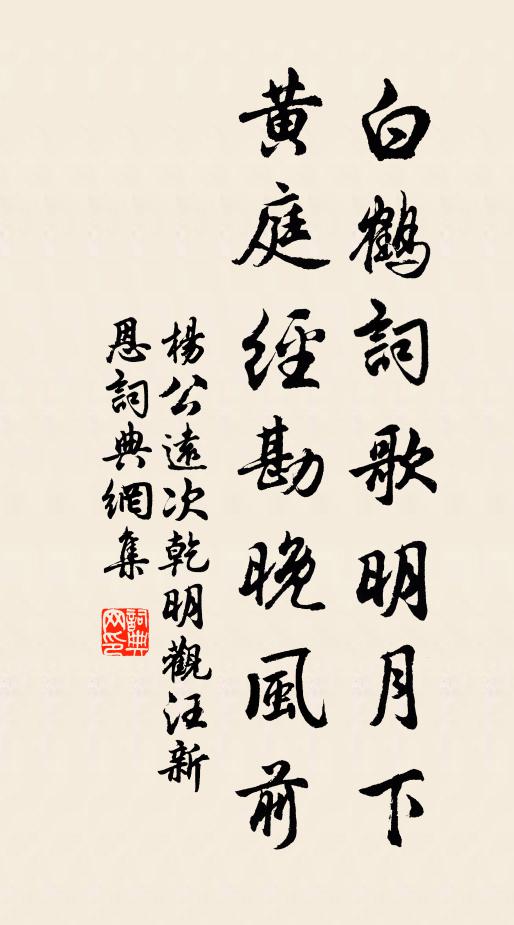 白鶴詞歌明月下
黄庭經勘晚風前
楊公遠次乾明觀汪新
恩詞典網集
詞典
网印